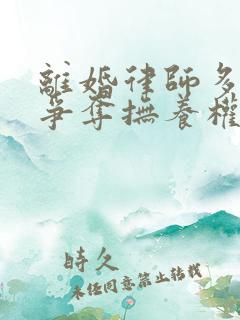 離婚律師多
爭奪撫養權
時久
未經同意禁止轉載